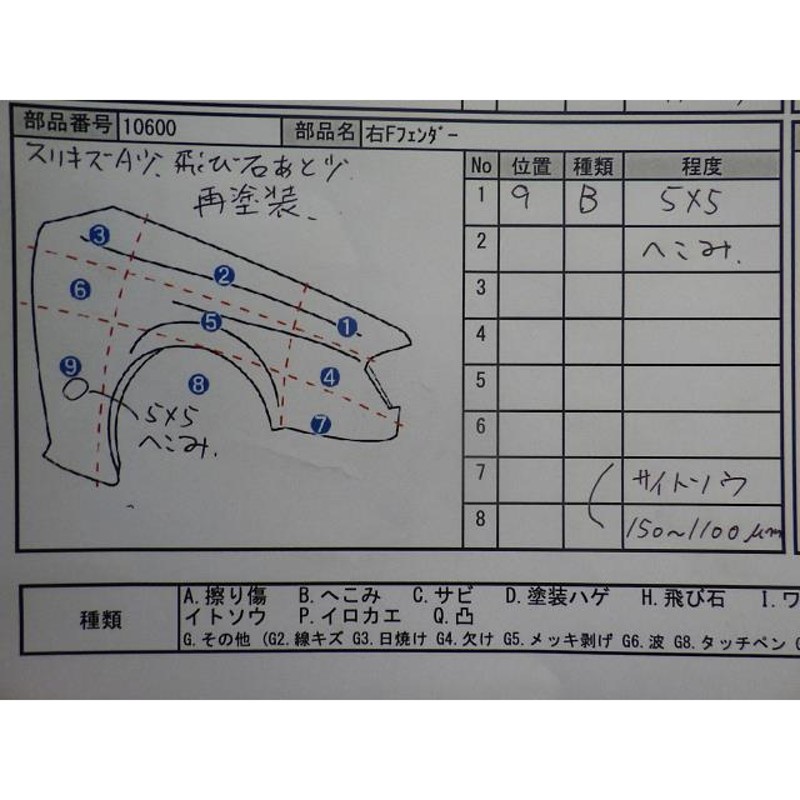 部品番号 10600 部品名 右Fフェンダー
スリキズーAツ、飛び石あとツ
再塗装、
No 位置 種類 程度
1 9 B 5×5
2 へこみ.
3
4
5
6
7 サイトーソウ
8 150~1100μm
3
2
6
5
1
9
8
4
7
5×5
へこみ.
種類
A.擦り傷 B.へこみ C.サビ D.塗装ハゲ H.飛び石 I.ワ
イトソウ P.イロカエ Q.凸
G.その他 (G2.線キズ G3.日焼け G4.欠け G5.メッキ剥げ G6.波 G8.タッチペン